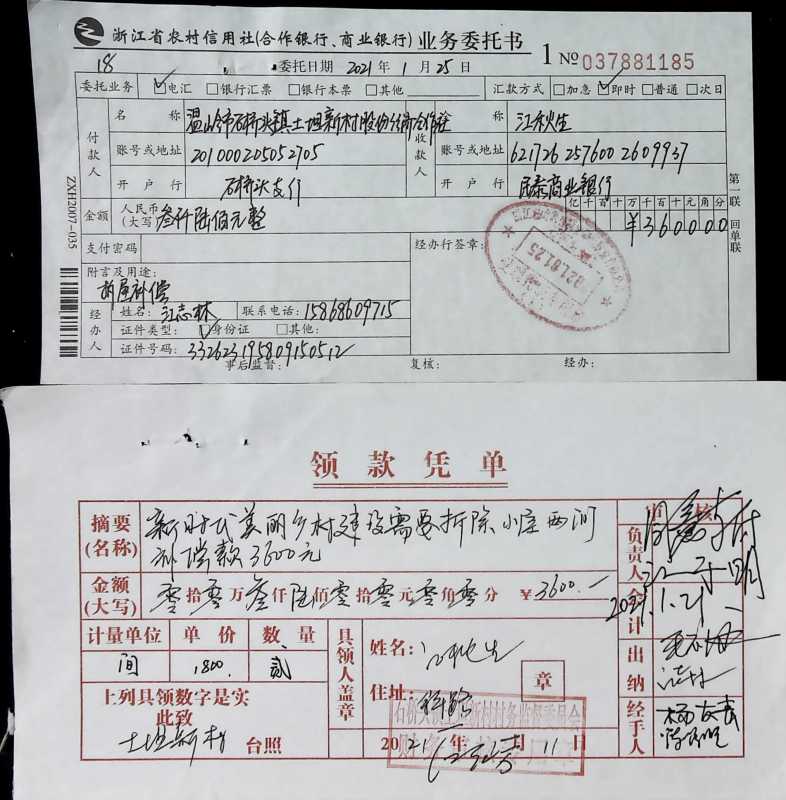 浙江省农村信用社(合作银行、商业银行) 业务委托书 1 № 037881185
18 委托日期 2021年 1月 25日
委托业务 ☑电汇 □银行汇票 □银行本票 □其他 汇款方式 □加急 ☑即时 □普通 □次日
付款人 名称 温岭市石桥头镇土坦新村股份经济合作社 收款人
账号或地址 201000205052705 6217262576002609937
开户行 石桥头支行 开户行 民泰商业银行
金额 人民币(大写) 叁仟陆佰元整 亿千百十万千百十元角分
¥360000
支付密码 经办行签章:
附言及用途:
拆屋补偿
经办人 姓名: 江志林 联系电话: 15868609715
证件类型: ☑身份证 □其他:
证件号码: 332623195809150512
事后监督: 复核: 经办:
ZXH2007-035
第一联 回单联
2021.01.25
领款凭单
摘要(名称) 新时代美丽乡村建设需要拆除小屋两间
补偿款3600元
金额(大写) 零拾零万叁仟陆佰零拾零元零角零分 ¥3600.—
计量单位 单价 数量
间 1800. 贰
上列具领数字是实
此致
土坦新村 台照
具领人盖章
姓名:
住址:
章
2021年 11日
审核
负责人
会计
2021.1.21
出纳
经手人